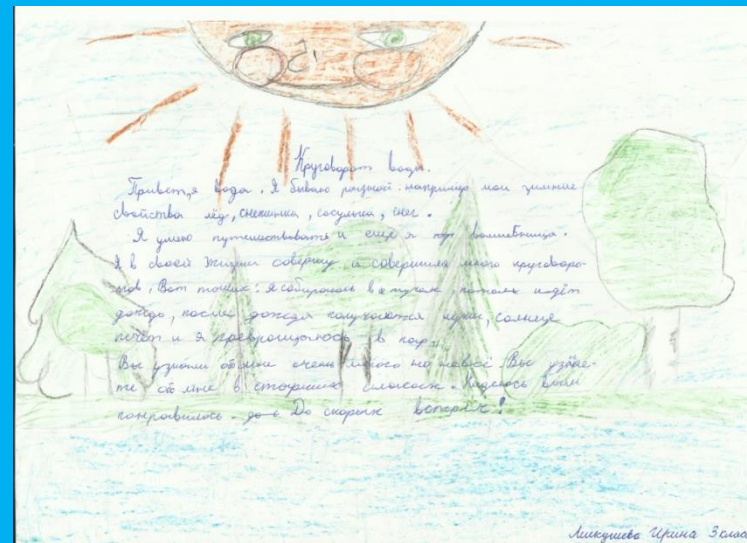 Круговорот воды.
Привет, я вода. Я бываю разной: например мои зимние
свойства лёд, снежинка, сосулька, снег.
Я умею путешествовать и ещё я волшебница.
Я в своей жизни совершу и совершила много круговоро-
тов, Вот таких: я собираюсь в тучах потом идёт
дождь, после дождя получаются лужи, солнце
печёт и я превращаюсь в пар.
Вы узнали обо мне очень много но не всё. Вы узнае-
те обо мне в старших классах. Надеюсь вам
понравилось. До скорых встреч!
Ирина 3 клас